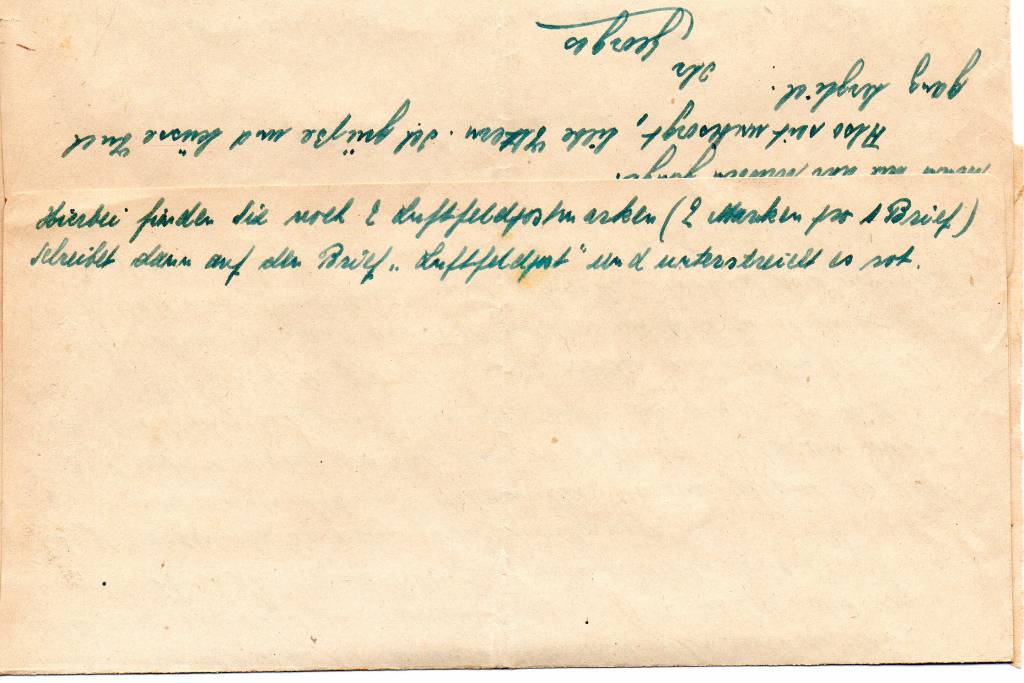 Also seit unbesorgt, liebe Eltern. Ich grüße und küsse Euch
ganz herzlich.
Ihr
Georges
Hierbei finden Sie noch 2 Luftfeldpostmarken (2 Marken pro 1 Brief)
schreibet dann auf den Brief „Luftfeldpost" und unterstreicht es rot.